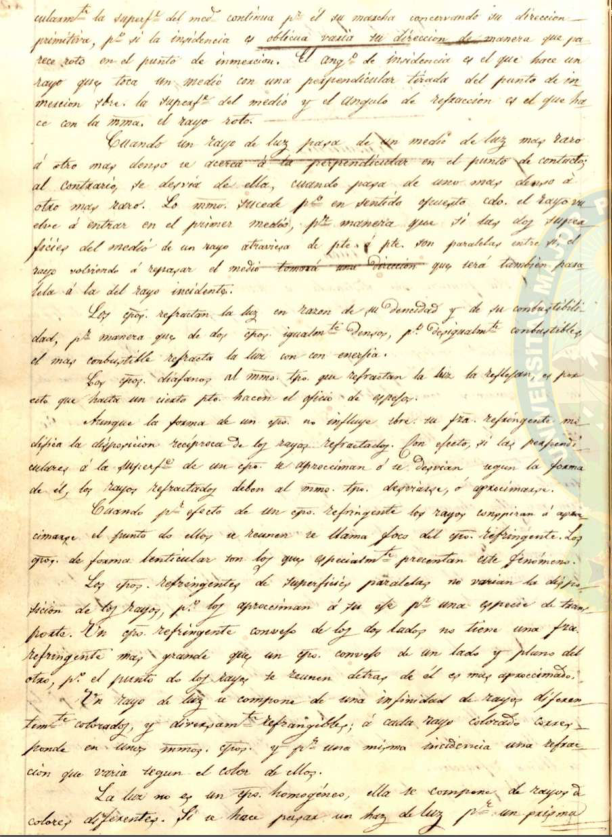 cularmte la superfe del medo continua pr él su marcha concervando su direccion
primitiva, po si la insidencia es oblicua varia su direccion de manera que pa
rece roto en el punto de inmercion. El ango de insidencia es el que hace un
rayo que toca un medio con una perpendicular tirada del punto de in
mercion sbre. la superfe del medio y el angulo de refraccion es el que ha
ce con la mma. el rayo roto.
Cuando un rayo de luz pasa de un medio de luz mas raro
á otro mas denso se acerca á la perpendicular en el punto de contacto;
al contrario, se desvia de ella, cuando pasa de uno mas denso á
otro mas raro. Lo mmo. sucede po en sentido opuesto cdo. el rayo vu
elve á entrar en el primer medio, pr manera que si las dos super
ficies del medio de un rayo atraviesa de pte. á pte. son paralelas entre si, el
rayo volviendo á repasar el medio tomará una direccion que será tambien para
lela á la del rayo incidente.
Los cpos. refractan la luz en razon de su densidad y de su combustibili
dad, pr manera que de dos cpos igualmte densos, po desigualmte combustibles,
el mas conbustible refracta la luz con con energia.
Los cpos. diáfanos al mmo. tpo. que refractan la luz la reflejan, es por
esto que hasta un cierto pto. hacen el oficio de espejos.
Aunque la forma de un cpo. no influye sbre. su fza. refringente mo
difica la disposicion reciproca de los rayos refractados. Con efecto, si las perpendi
culares á la superfe de un cpo. se aprocciman ó se desvian segun la forma
de él, los rayos refractados deben al mmo. tpo. desviarse, ó aprocimarse.
Cuando pr efecto de un cpo. refringente los rayos conspiran á apro
cimarse el punto do ellos se reunen se llama foco del cpo. refringente. Los
cpos. de forma lenticular son los que especialmte presentan este fenómeno.
Los cpos. refringentes de superficies paralelas no varian la dispo
sición de los rayos, po los aprocciman á su eje pr una especie de trans
porte. Un cpo. refringente convejo de los dos lados no tiene una fza.
refringente mas grande que un cpo. convejo de un lado y plano del
otro, po el punto do los rayos se reunen detras de él es mas aprocimado.
Un rayo de luz se compone de una infinidad de rayos diferen
temte colorados, y diversamte refrangibles; á cada rayo colorado corres
ponde en unos mmos. cpos. y pr una misma incidencia una refrac
cion que varia segun el color de ellos.
La luz no es un cpo. homogéneo, ella se compone de rayos de
colores diferentes. Si se hace pasar un haz de luz pr un prisma